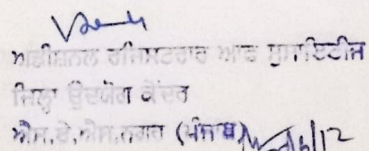 ਅਡੀਸ਼ਨਲ ਰਜਿਸਟਰਾਰ ਆਫ ਸੁਸਾਇਟੀਜ਼
ਜਿਲ੍ਹਾ ਉਦਯੋਗ ਕੇਂਦਰ
ਐਸ.ਏ.ਐਸ.ਨਗਰ (ਪੰਜਾਬ)